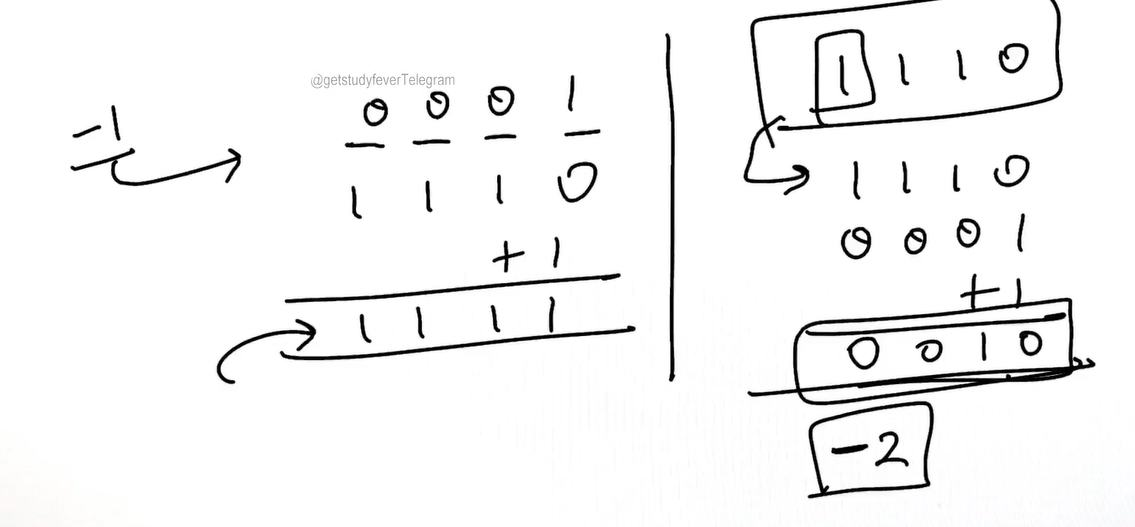 @getstudyfeverTelegram
-1
0 0 0 1
1 1 1 0
+ 1
1 1 1 1
1 1 1 0
1 1 1 0
0 0 0 1
+ 1
0 0 1 0
-2